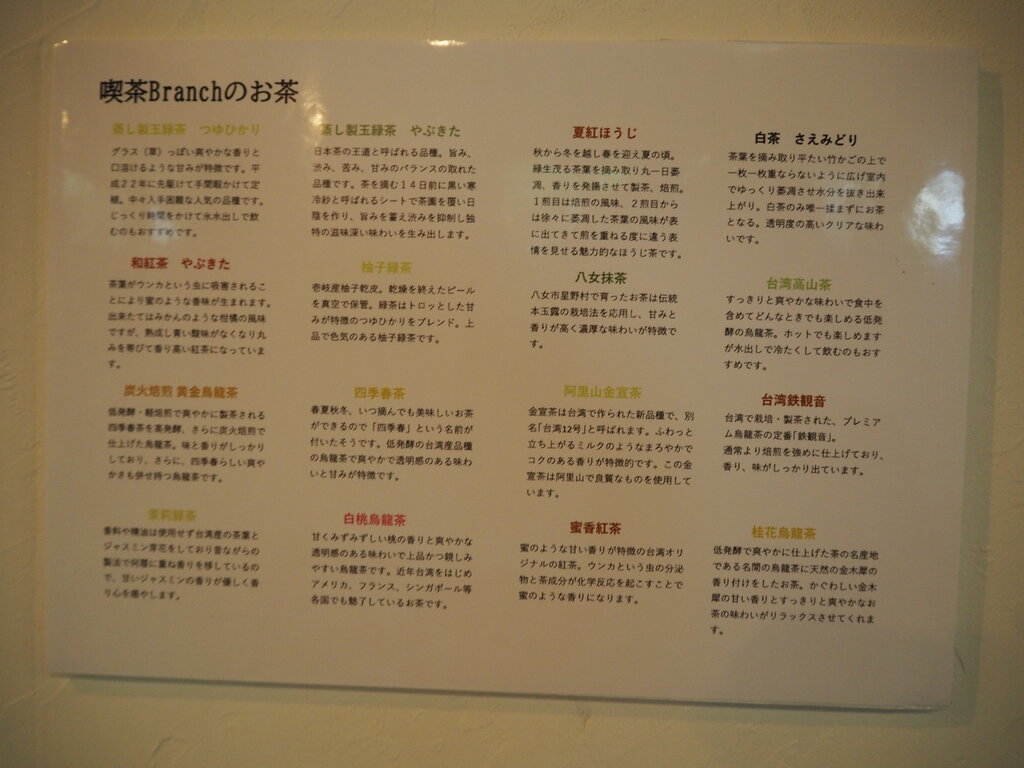 喫茶Branchのお茶
蒸し製玉緑茶　つゆひかり
グラス（草）っぽい爽やかな香りと
口溶けるような甘みが特徴です。平
成２２年に先駆けて手間暇かけて定
植。中々入手困難な人気の品種です。
じっくり時間をかけて氷水出しで飲
むのもおすすめです。
蒸し製玉緑茶　やぶきた
日本茶の王道と呼ばれる品種。旨み、
渋み、苦み、甘みのバランスの取れた
品種です。茶を摘む１４日前に黒い寒
冷紗と呼ばれるシートで茶園を覆い日
陰を作り、旨みを蓄え渋みを抑制し独
特の滋味深い味わいを生み出します。
夏紅ほうじ
秋から冬を越し春を迎え夏の頃。
緑生茂る茶葉を摘み取り丸一日萎
凋、香りを発揚させて製茶、焙煎。
１煎目は焙煎の風味、２煎目から
は徐々に萎凋した茶葉の風味が表
に出てきて煎を重ねる度に違う表
情を見せる魅力的なほうじ茶です。
白茶　さえみどり
茶葉を摘み取り平たい竹かごの上で
一枚一枚重ならないように広げ室内
でゆっくり萎凋させ水分を抜き出来
上がり。白茶のみ唯一揉まずにお茶
となる。透明度の高いクリアな味わ
いです。
和紅茶　やぶきた
茶葉がウンカという虫に吸害されるこ
とにより蜜のような香味が生まれます。
出来たてはみかんのような柑橘の風味
ですが、熟成し青い酸味がなくなり丸
みを帯びて香り高い紅茶になっていま
す。
柚子緑茶
壱岐産柚子乾皮。乾燥を終えたピール
を真空で保管。緑茶はトロッとした甘
みが特徴のつゆひかりをブレンド。上
品で色気のある柚子緑茶です。
八女抹茶
八女市星野村で育ったお茶は伝統
本玉露の栽培法を応用し、甘みと
香りが高く濃厚な味わいが特徴で
す。
台湾高山茶
すっきりと爽やかな味わいで食中を
含めてどんなときでも楽しめる低発
酵の烏龍茶。ホットでも楽しめます
が水出しで冷たくして飲むのもおす
すめです。
炭火焙煎 黄金烏龍茶
低発酵・軽焙煎で爽やかに製茶される
四季春茶を高発酵、さらに炭火焙煎で
仕上げた烏龍茶。味と香りがしっかり
しており、さらに、四季春らしい爽や
かさも併せ持つ烏龍茶です。
四季春茶
春夏秋冬、いつ摘んでも美味しいお茶
ができるので「四季春」という名前が
付いたそうです。低発酵の台湾産品種
の烏龍茶で爽やかで透明感のある味わ
いと甘みが特徴です。
阿里山金宣茶
金宣茶は台湾で作られた新品種で、別
名「台湾12号」と呼ばれます。ふわっと
立ち上がるミルクのようなまろやかで
コクのある香りが特徴的です。この金
宣茶は阿里山で良質なものを使用して
います。
台湾鉄観音
台湾で栽培・製茶された、プレミア
ム烏龍茶の定番「鉄観音」。
通常より焙煎を強めに仕上げており、
香り、味がしっかり出ています。
茉莉緑茶
香料や精油は使用せず台湾産の茶葉と
ジャスミン芽花をしており昔ながらの
製法で何層に重ね香りを移しているの
で、甘いジャスミンの香りが優しく香
り心を癒やします。
白桃烏龍茶
甘くみずみずしい桃の香りと爽やかな
透明感のある味わいで上品かつ親しみ
やすい烏龍茶です。近年台湾をはじめ
アメリカ、フランス、シンガポール等
各国でも魅了しているお茶です。
蜜香紅茶
蜜のような甘い香りが特徴の台湾オリ
ジナルの紅茶。ウンカという虫の分泌
物と茶成分が化学反応を起こすことで
蜜のような香りになります。
桂花烏龍茶
低発酵で爽やかに仕上げた茶の名産地
である名間の烏龍茶に天然の金木犀の
香り付けをしたお茶。かぐわしい金木
犀の甘い香りとすっきりと爽やかなお
茶の味わいがリラックスさせてくれま
す。